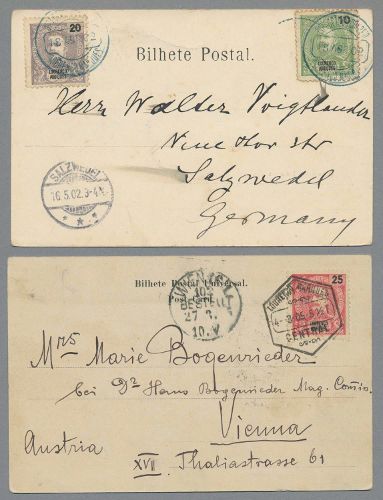 20
10
LOURENÇO MARQUES
LOURENÇO MARQUES
Bilhete Postal.
Herr Walter Voigtländer
Neue Thor str
Salzwedel
Germany
SALZWEDEL
16.5.02.3-4
25
Bilhete Postal Universal.
Post Card
BESTELLT
27.
10.V
LOURENÇO MARQUES
CENTRAL
Mrs Marie Bogenrieder
bei Dr Hans Bogenrieder Mag.
Vienna
Austria
XVII Thaliastrasse 61